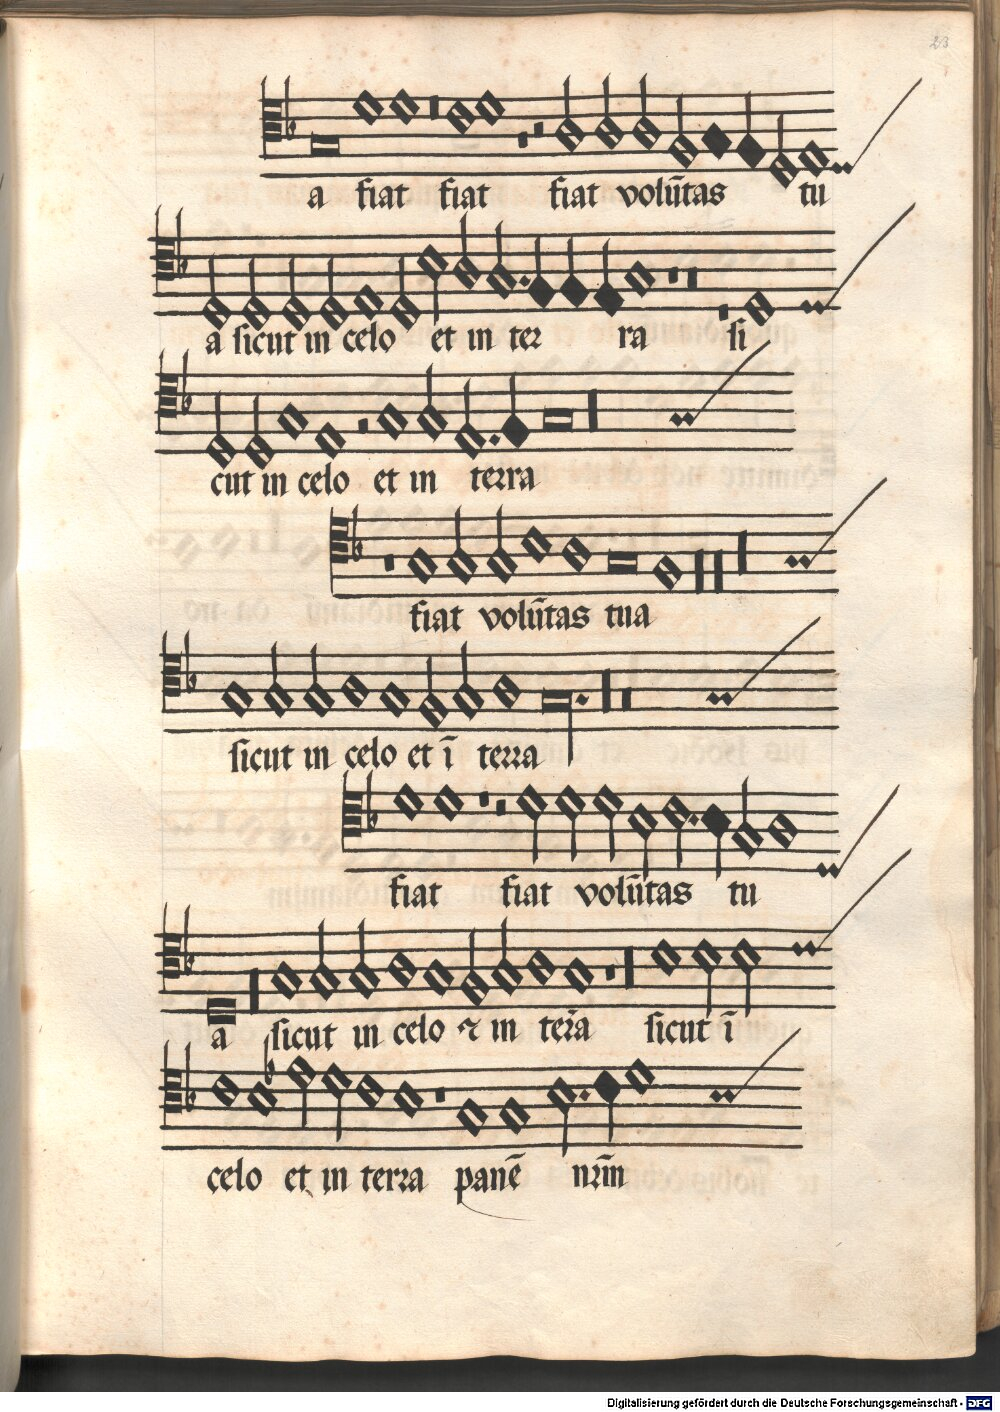 23
a fiat fiat fiat volūtas tu
a sicut in celo et in ter ra si
cut in celo et in terra
fiat volūtas tua
sicut in celo et ī terra
fiat fiat volūtas tu
a sicut in celo ⁊ in ter̄a sicut ī
celo et in terra panē nr̄m
Digitalisierung gefördert durch die Deutsche Forschungsgemeinschaft - DFG